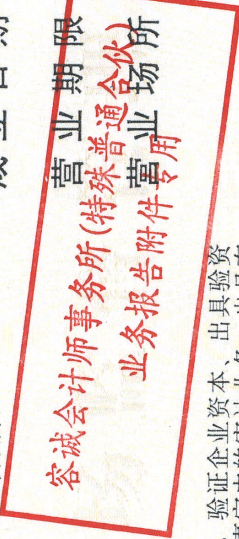 营业期限
营业场所
容诚会计师事务所(特殊普通合伙)
业务报告附件专用
验证企业资本、出具验资